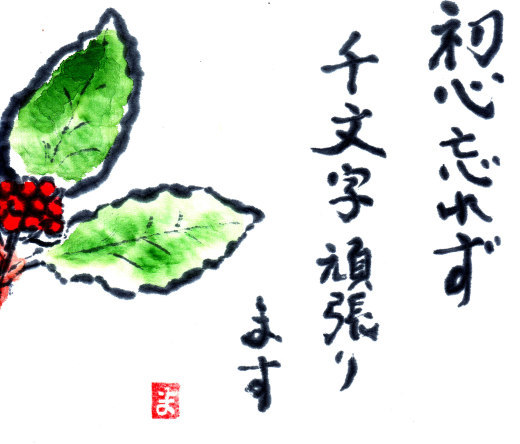 初心忘れず
千文字頑張り
ます
ま